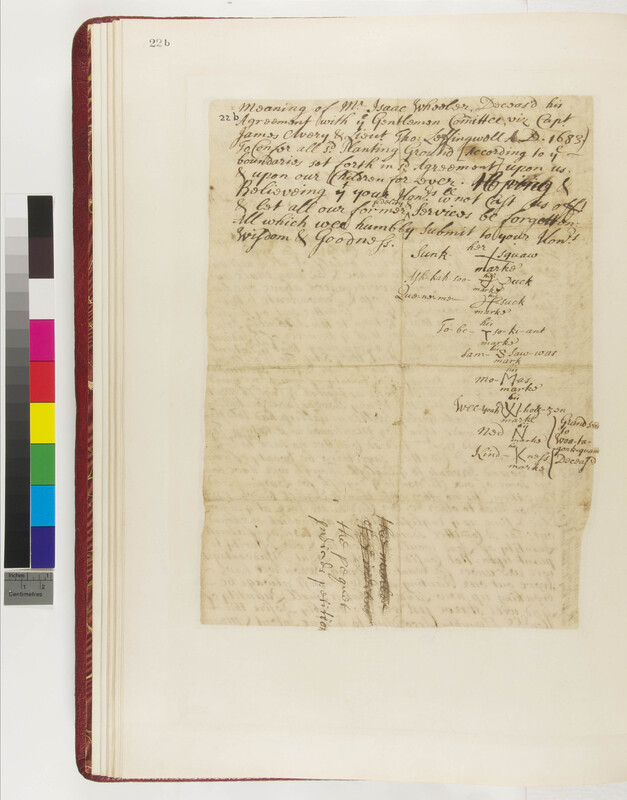 22b
22 b
Meaning of Mr Isaac Wheeler, Deceas'd his
Agreement with ye Gentlemen Comittee, viz Capt
James Avery & Lieut Tho: Leffingwell A.D. 1683)
To Confer all sd Planting Ground (According to ye
boundaries set forth in sd Agreement) upon us
& upon our Children for Ever. Hoping &
Believeing yt your Honrs to be w not Cast us off
& let all our former Services be forgotten
All which wee humbly Submit to your Honrs
Wisdom & Goodness.
Sunk her squaw
marke
his suck
marke
his suck
marke
To-be- his to-ki-ant
marke
Sam- S Saw-was
mark
his
mo- M Mas
marke
his
W
marke
Ned N
his
marke
Kind- K ness
marke
Grandsons
to
Deceas'd
the pequit
indiads potition
Inches
Centimetres